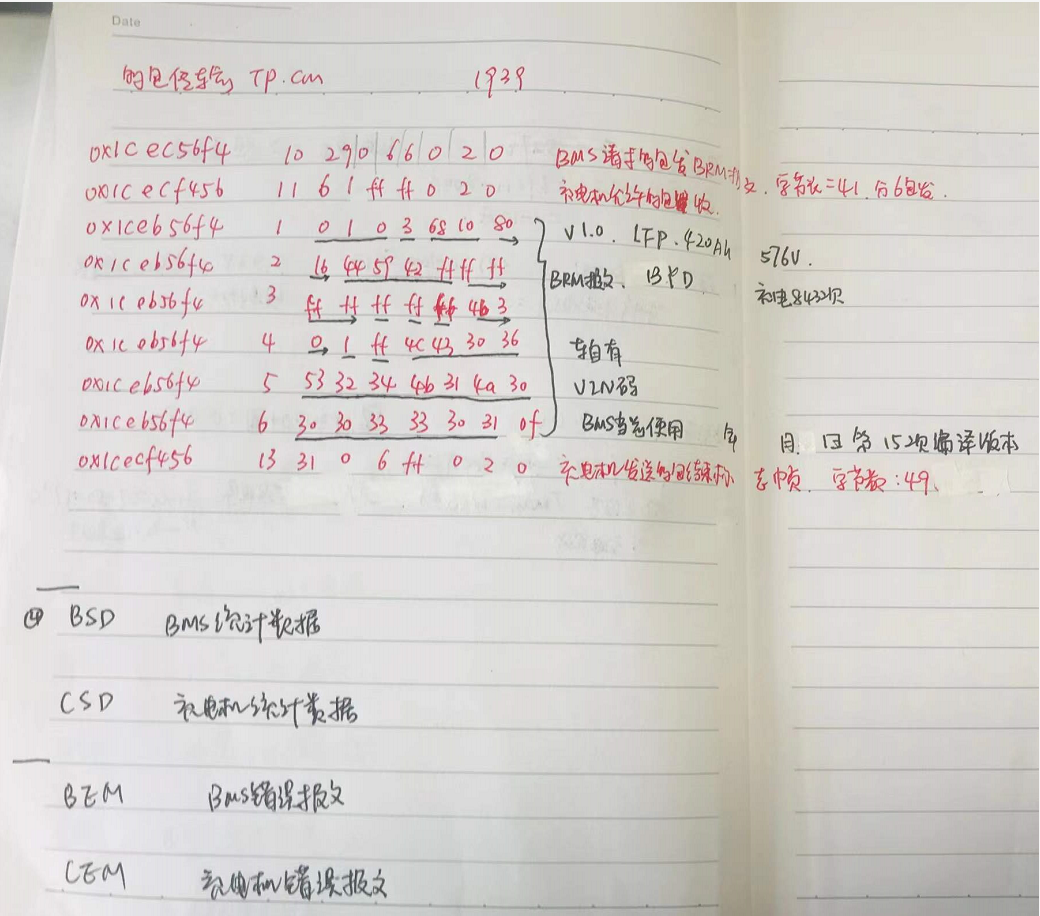 Date
的包传输 TP.CM 1939
0x1cec56f4 10 29 0 6 6 0 2 0 BMS请求的包发BRM报文. 字节数=41. 分6包发.
0x1cecf456 11 6 1 ff ff 0 2 0 充电机允许的包 收.
0x1ceb56f4 1 0 1 0 3 68 10 80 V1.0. LFP. 420Ah 576V.
0x1ceb56f4 2 16 44 59 42 ff ff ff BRM报文. BYD.
0x1ceb56f4 3 ff ff ff ff 4b 3 充电8432次
0x1ceb56f4 4 0 1 ff 4c 43 30 36 车自有
0x1ceb56f4 5 53 32 34 4b 31 4a 30 VIN码
0x1ceb56f4 6 30 30 33 33 30 31 0f BMS当前使用 年 月 日第152次编译版本
0x1cecf456 13 31 0 6 ff 0 2 0 充电机发送的包结束标志帧. 字节数:49.
④ BSD BMS统计数据
CSD 充电机统计数据
BEM BMS错误报文
CEM 充电机错误报文